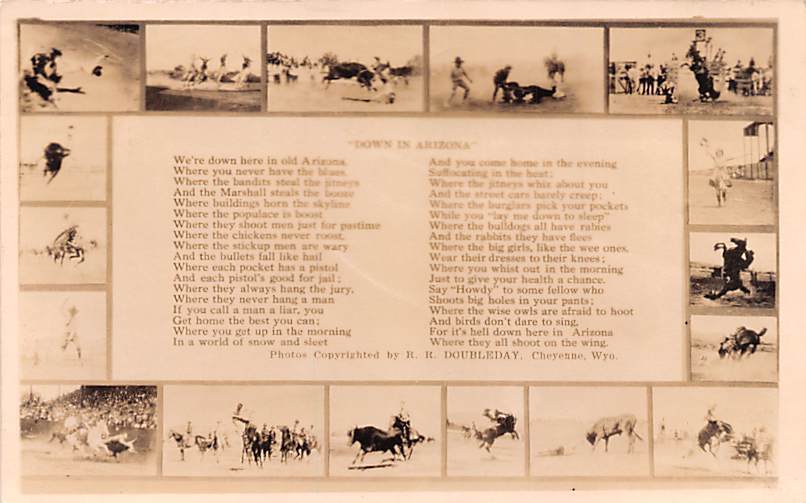 "DOWN IN ARIZONA"
We're down here in old Arizona.
Where you never have the blues.
Where the bandits steal the jitneys
And the Marshall steals the booze
Where buildings horn the skyline
Where the populace is boost
Where they shoot men just for pastime
Where the chickens never roost,
Where the stickup men are wary
And the bullets fall like hail
Where each pocket has a pistol
And each pistol's good for jail;
Where they always hang the jury,
Where they never hang a man
If you call a man a liar, you
Get home the best you can;
Where you get up in the morning
In a world of snow and sleet
And you come home in the evening
Suffocating in the heat;
Where the jitneys whiz about you
And the street cars barely creep;
Where the burglars pick your pockets
While you "lay me down to sleep"
Where the bulldogs all have rabies
And the rabbits they have flees
Where the big girls, like the wee ones,
Wear their dresses to their knees;
Where you whist out in the morning
Just to give your health a chance.
Say "Howdy" to some fellow who
Shoots big holes in your pants;
Where the wise owls are afraid to hoot
And birds don't dare to sing,
For it's hell down here in Arizona
Where they all shoot on the wing.
Photos Copyrighted by R. R. DOUBLEDAY, Cheyenne, Wyo.